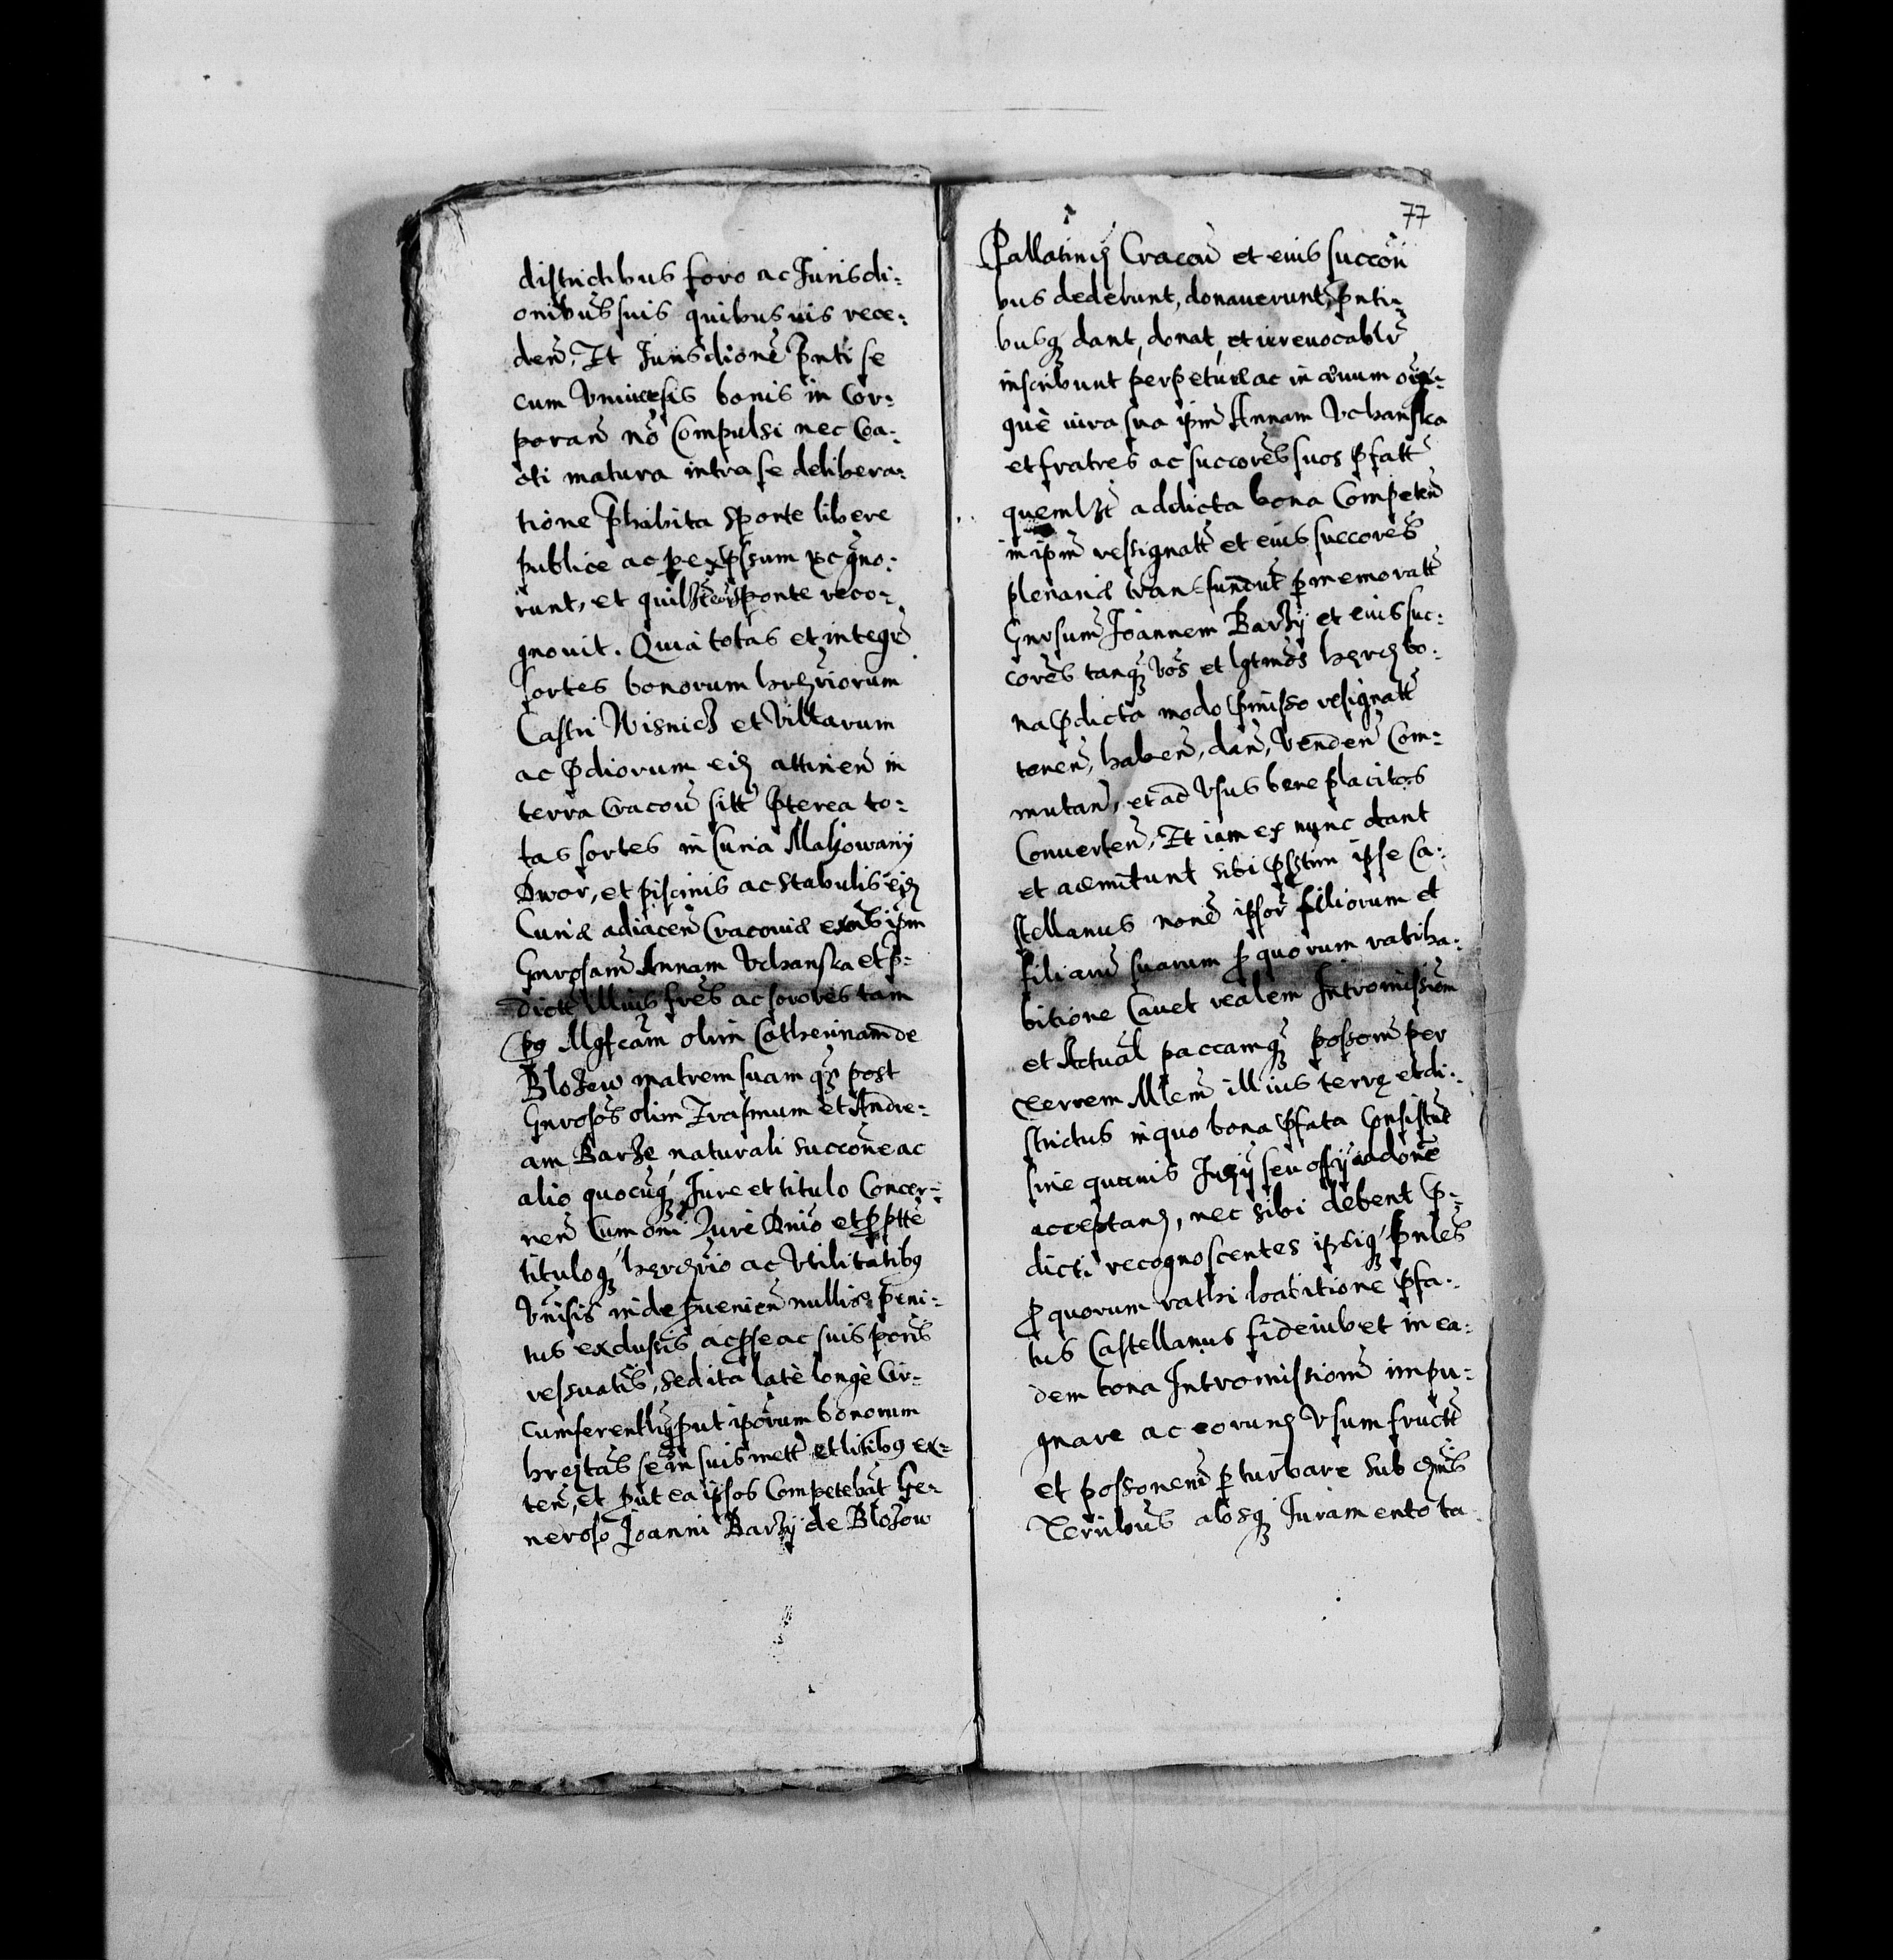 districtibus foro ac Jurisdi:
onibus suis quibusuis rece:
den̄. Et Jurisdione p̄nti se
cum Vniuersis bonis in Cor:
poran̄ nō Compulsi nec Coa:
cti matura intra se delibera:
tione p̄habita sponte libere
publice ac per exp̄ssum recgno:
runt, et quilꝫt eor̄ sponte reco:
gnouit. Quia totas et integr̄
sortes bonorum hrdriorum
Castri Wisnicz et Villarum
ac p̄diorum eiꝫ attinen̄ in
terra Cracou̅ sitt̄ p̄terea to:
tas sortes in Curia Malzowany
Dwor, et piscinis ac stabulis eiꝫ
Curiæ adiacen̄ Cracouiæ ipm
Gnrosam̄ Annam Vchanska et p̄:
dictē illius fr̄es ac sorores tam
pꝫ Mgfcam̄ olim Catherinam de
Blozew matrem suam qꝫ post
Gnrosos olim Erasmum et Andre:
am Barze naturali succōne ac
alio quocuqꝫ Jure et titulo Concer:
nen̄ Cum om̄i Jure Dnīo et p̄ptte
tituloqꝫ herdrio ac Vtilitatibꝫ
Vnīsis inde ꝓuenien̄ nullis peni:
tus exclussis ac ꝓ se ac suis pori̅b
ressuatis, sed ita latè longè Cir:
cumferentiꝫ put ipōrum bonorum
hreitas se in suis mett̄ et litibꝫ ex:
ten̄, et put ea ipsos Competebāt Ge:
neroso Joanni Barzÿ de Blozow

77
Pallatiniꝫ Cracou̅ et eius succori
bus dederunt, donauerunt, p̄nti:
busqꝫ dant, donāt, et irreuocablr̄
inscribunt perpetuæ ac in æuum
què iura sua ipm̄ Annam Vchanska
et fratres ac succores suos p̄fatt̄
quemlꝫt ad dicta bona Competen̄
in ipm̄ ressignatt̄ et eius succores
plenariæ transfundūt p̄ memoratt̄
Gnrsum̄ Joannem Barzÿ et eius suc:
cores tanqꝫ Vos et lgtmōs herdꝫ bo:
na p̄dicta modo p̄misso resignatt̄
tenen̄, haben̄, dan̄, Venden̄ Com:
mutan̄, et ad Vsus bene placitos
Conuerten̄. Et iam ex nunc dant
et admitunt sibi p̄sꝫtim ipse Ca:
stellanus noīe ipsor̄ filiorum et
filiarū suarum ꝓ quorum ratiha:
bitione Cauet realem Intromission̄
et Actual̄ paccamqꝫ posson̄ per
terrem Mlem̄ illius terrę et di:
strictus in quo bona p̄fata Consistūt
sine quauis Jurÿ seu offÿ addone
acceptanꝫ, nec sibi debent p̄:
dicti recognoscentes ipsiqꝫ p̄nles
ꝓ quorum rathi habitione p̄fa:
tus Castellanus fideiubet in ea:
dem bona Intromission̄ impu:
gnare ac eorunꝫ Vsum fructt̄
et possonem̄ ꝑ turbare sub
Terribus absqꝫ Juramento ta: